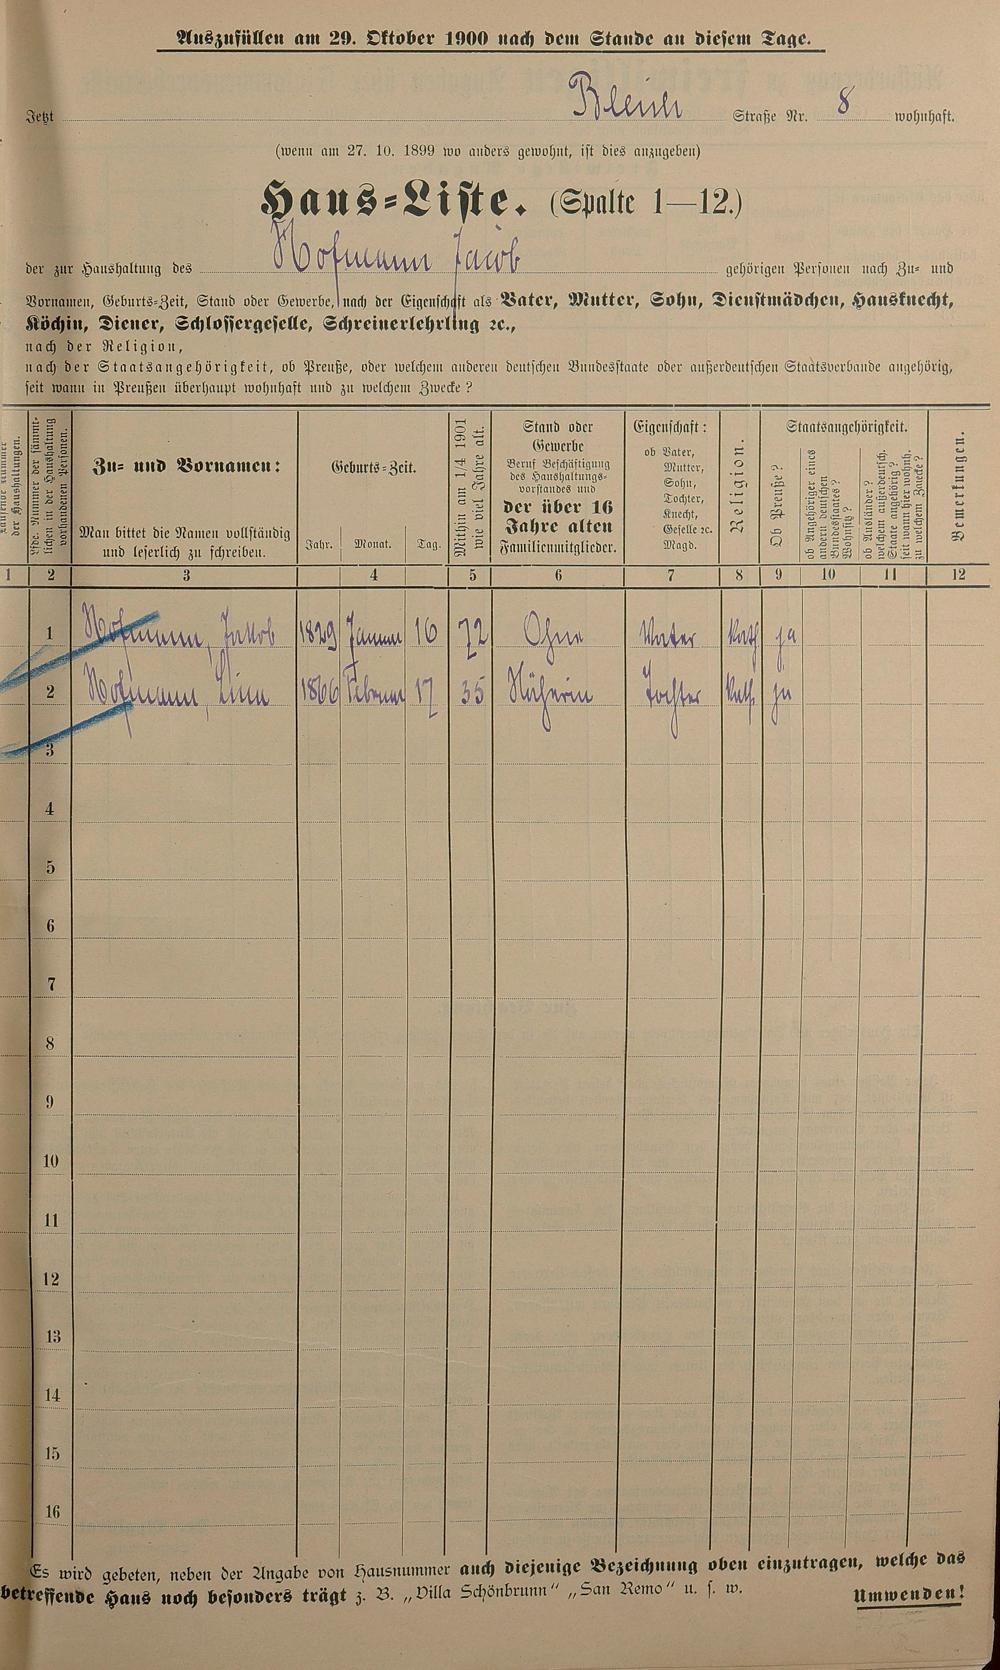 Auszufüllen am 29. Oktober 1900 nach dem Stande an diesem Tage.
Jetzt Bleich Straße Nr. 8 wohnhaft.
(wenn am 27. 10. 1899 wo anders gewohnt, ist dies anzugeben)
Haus-Liste. (Spalte 1—12.)
der zur Haushaltung des Hofmann Jacob gehörigen Personen nach Zu- und
Vornamen, Geburts-Zeit, Stand oder Gewerbe, nach der Eigenschaft als Vater, Mutter, Sohn, Dienstmädchen, Hausknecht,
Köchin, Diener, Schlossergeselle, Schreinerlehrling ꝛc.,
nach der Religion,
nach der Staatsangehörigkeit, ob Preuße, oder welchem anderen deutschen Bundesstaate oder außerdeutschen Staatsverbande angehörig,
seit wann in Preußen überhaupt wohnhaft und zu welchem Zwecke?
Laufende Nummer der Haushaltungen.
Lfde. Nummer der sämmtlichen in der Haushaltung vorhandenen Personen.
Zu- und Vornamen:
Man bittet die Namen vollständig
und leserlich zu schreiben.
Geburts-Zeit.
Jahr. Monat. Tag.
Mithin am 1/4 1901
wie viel Jahre alt.
Stand oder
Gewerbe
Beruf Beschäftigung
des Haushaltungs-
vorstandes und
der über 16
Jahre alten
Familienmitglieder.
Eigenschaft:
ob Vater,
Mutter,
Sohn,
Tochter,
Knecht,
Geselle ꝛc.
Magd.
Religion.
Staatsangehörigkeit.
Ob Preuße?
ob Angehöriger eines
andern deutschen
Bundesstaates?
Wohnsitz?
ob Ausländer?
welchem außerdeutsch.
Staate angehörig?
seit wann hier wohnh.
zu welchem Zwecke?
Bemerkungen.
1 2 3 4 5 6 7 8 9 10 11 12
1 Hofmann, Jakob 1829 Januar 16 72 Ohne Vater Kath ja
2 Hofmann, Lina 1866 Februar 17 35 Näherin Tochter Kath. ja
3
4
5
6
7
8
9
10
11
12
13
14
15
16
Es wird gebeten, neben der Angabe von Hausnummer auch diejenige Bezeichnung oben einzutragen, welche das
betreffende Haus noch besonders trägt z. B. „Villa Schönbrunn“ „San Remo“ u. s. w.
Umwenden!